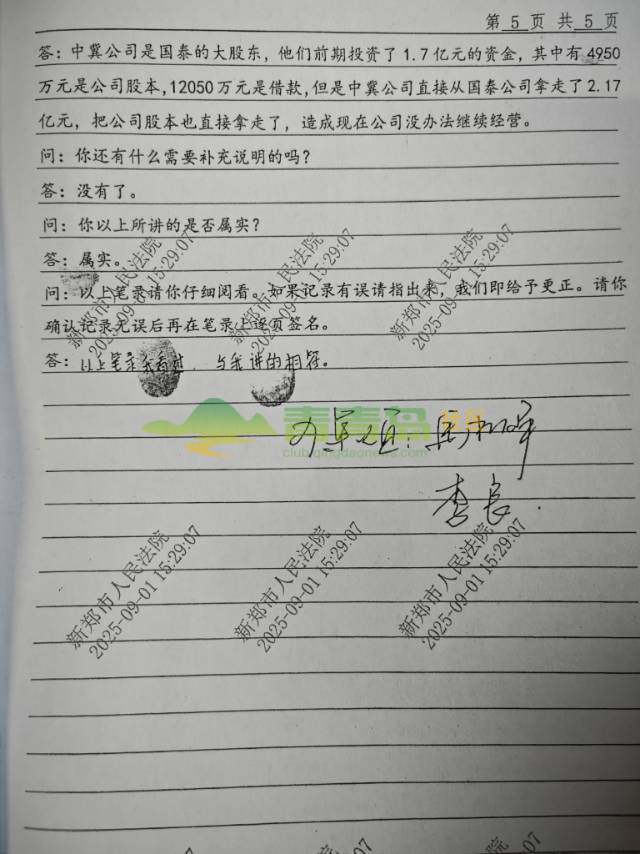 第 5 页 共 5 页
答：中冀公司是国泰的大股东，他们前期投资了 1.7 亿元的资金，其中有 4950
万元是公司股本，12050 万元是借款，但是中冀公司直接从国泰公司拿走了 2.17
亿元，把公司股本也直接拿走了，造成现在公司没办法继续经营。
问：你还有什么需要补充说明的吗？
答：没有了。
问：你以上所讲的是否属实？
答：属实。
问：以上笔录请你仔细阅看。如果记录有误请指出来，我们即给予更正。请你
确认记录无误后再在笔录上逐页签名。
答：以上笔录我看过，与我讲的相符。
青青岛
社区
club.qingdaonews.com
办案人员：
李良
新郑市人民法院
2025-09-01 15:29:07
新郑市人民法院
2025-09-01 15:29:07
新郑市人民法院
2025-09-01 15:29:07
新郑市人民法院
2025-09-01 15:29:07
新郑市人民法院
2025-09-01 15:29:07
新郑市人民法院
2025-09-01 15:29:07